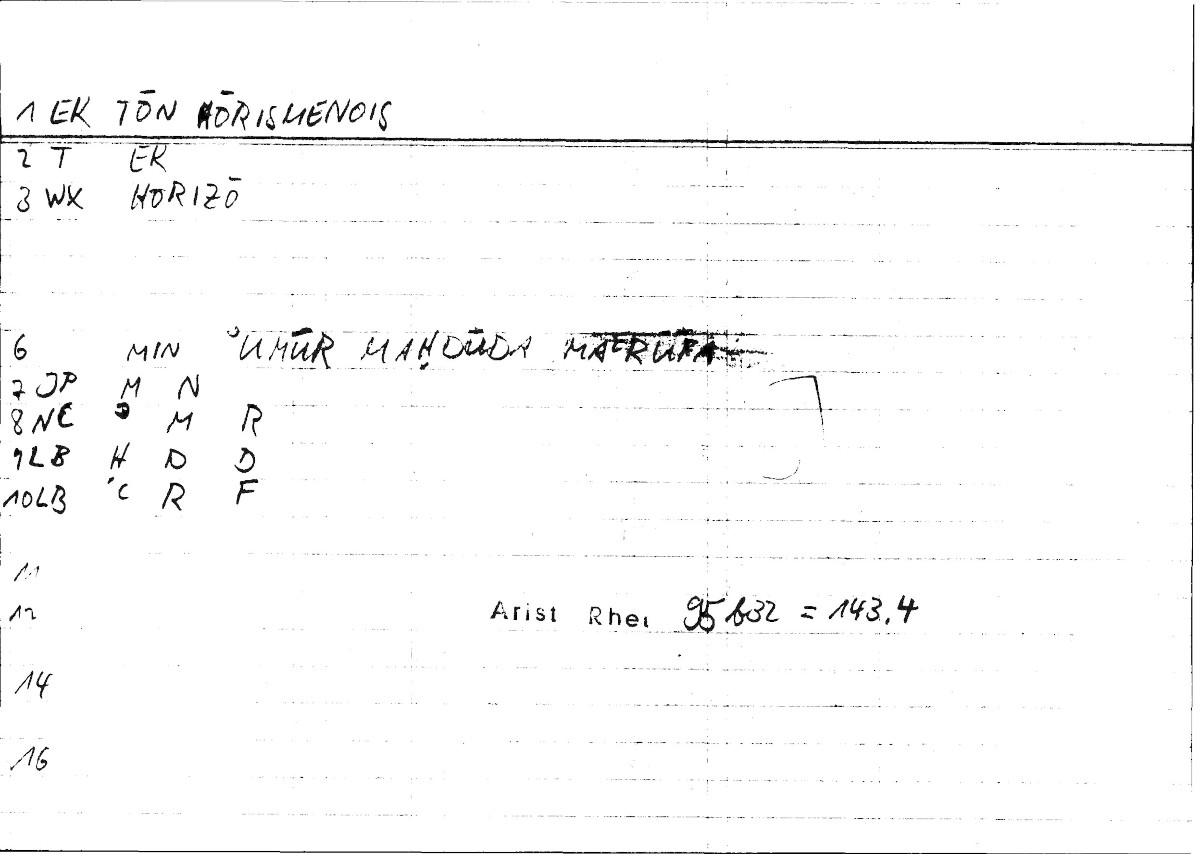 1 EK TŌN HŌRISMENOIS
2 T EK
3 WX HORIZŌ
6 MIN ʾUMŪR MAḤDŪDA MAʿRŪFA
7 JP M N
8 NE ʾ M R
9 LB H D D
10 LB ʿ R F
11
12 Arist Rhet 95b32 = 143.4
14
16